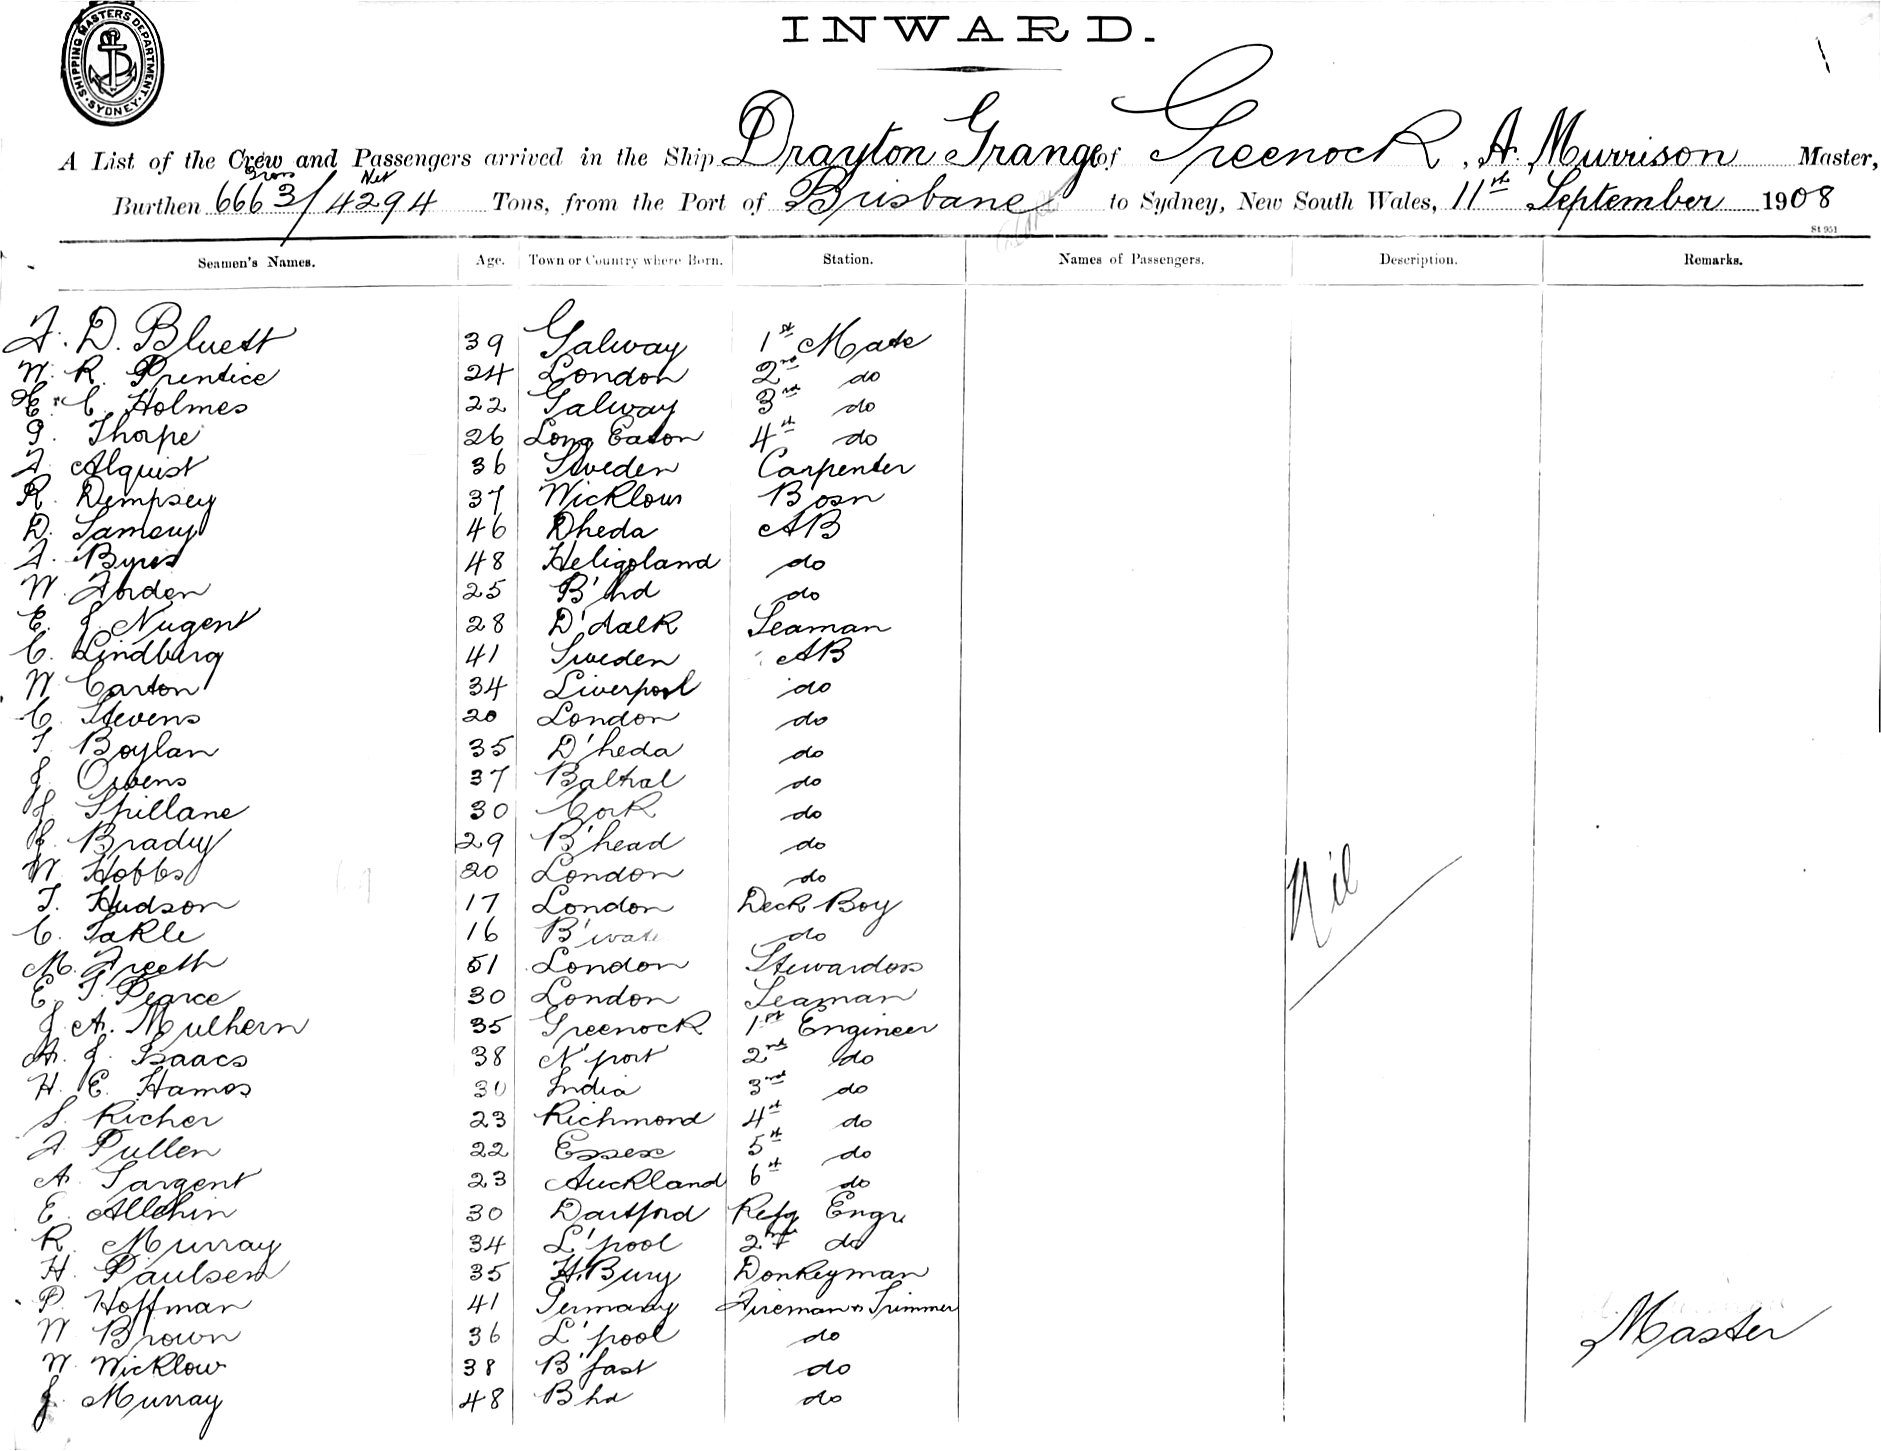 INWARD.
SHIPPING MASTERS DEPARTMENT. SYDNEY.
A List of the Crew and Passengers arrived in the Ship Drayton Grange of Greenock, A. Murrison Master,
Gross Net
Burthen 6663/4294 Tons, from the Port of Brisbane to Sydney, New South Wales, 11th September 1908
St 951
Seamen's Names. Age. Town or Country where Born. Station. Names of Passengers. Description. Remarks.
F. D. Bluett 39 Galway 1st Mate
W. R. Prentice 24 London 2nd do
C. Holmes 22 Galway 3rd do
G. Thorpe 26 Long Eaton 4th do
F. Alquist 36 Sweden Carpenter
R. Dempsey 37 Wicklow Bosn
D. 46 Dheda AB
F. Byrs 48 Heligoland do
W. Forden 25 B'hd do
E. J. Nugent 28 D'dalk Seaman
C. Lindburg 41 Sweden AB
W Carton 34 Liverpool do
C. Stevens 20 London do
T. Boylan 35 D'heda do
J. Owens 37 do
J. Spillane 30 Cork do
J. Brady 29 B'head do
W. Hobbs 20 London do
T. Hudson 17 London Deck Boy
C. Takle 16 do
M. Freeth 51 London Stewardess
E. T. Pearce 30 London Seaman
J. A. Mulhern 35 Greenock 1st Engineer
A. J. Isaacs 38 N'port 2nd do
H. E. Hames 30 India 3rd do
S. Richer 23 Richmond 4th do
F. Pullen 22 Essex 5th do
A. Sargent 23 Auckland 6th do
E. Allchin 30 Dartford Refg Engr
R. Murray 34 L'pool 2nd do
H. Paulsen 35 H.Bury Donkeyman
P. Hoffman 41 Germany Fireman & Trimmer
W Brown 36 L'pool do
W. Wicklow 38 B'fast do
J. Murray 48 Bhd do
Nil
Master